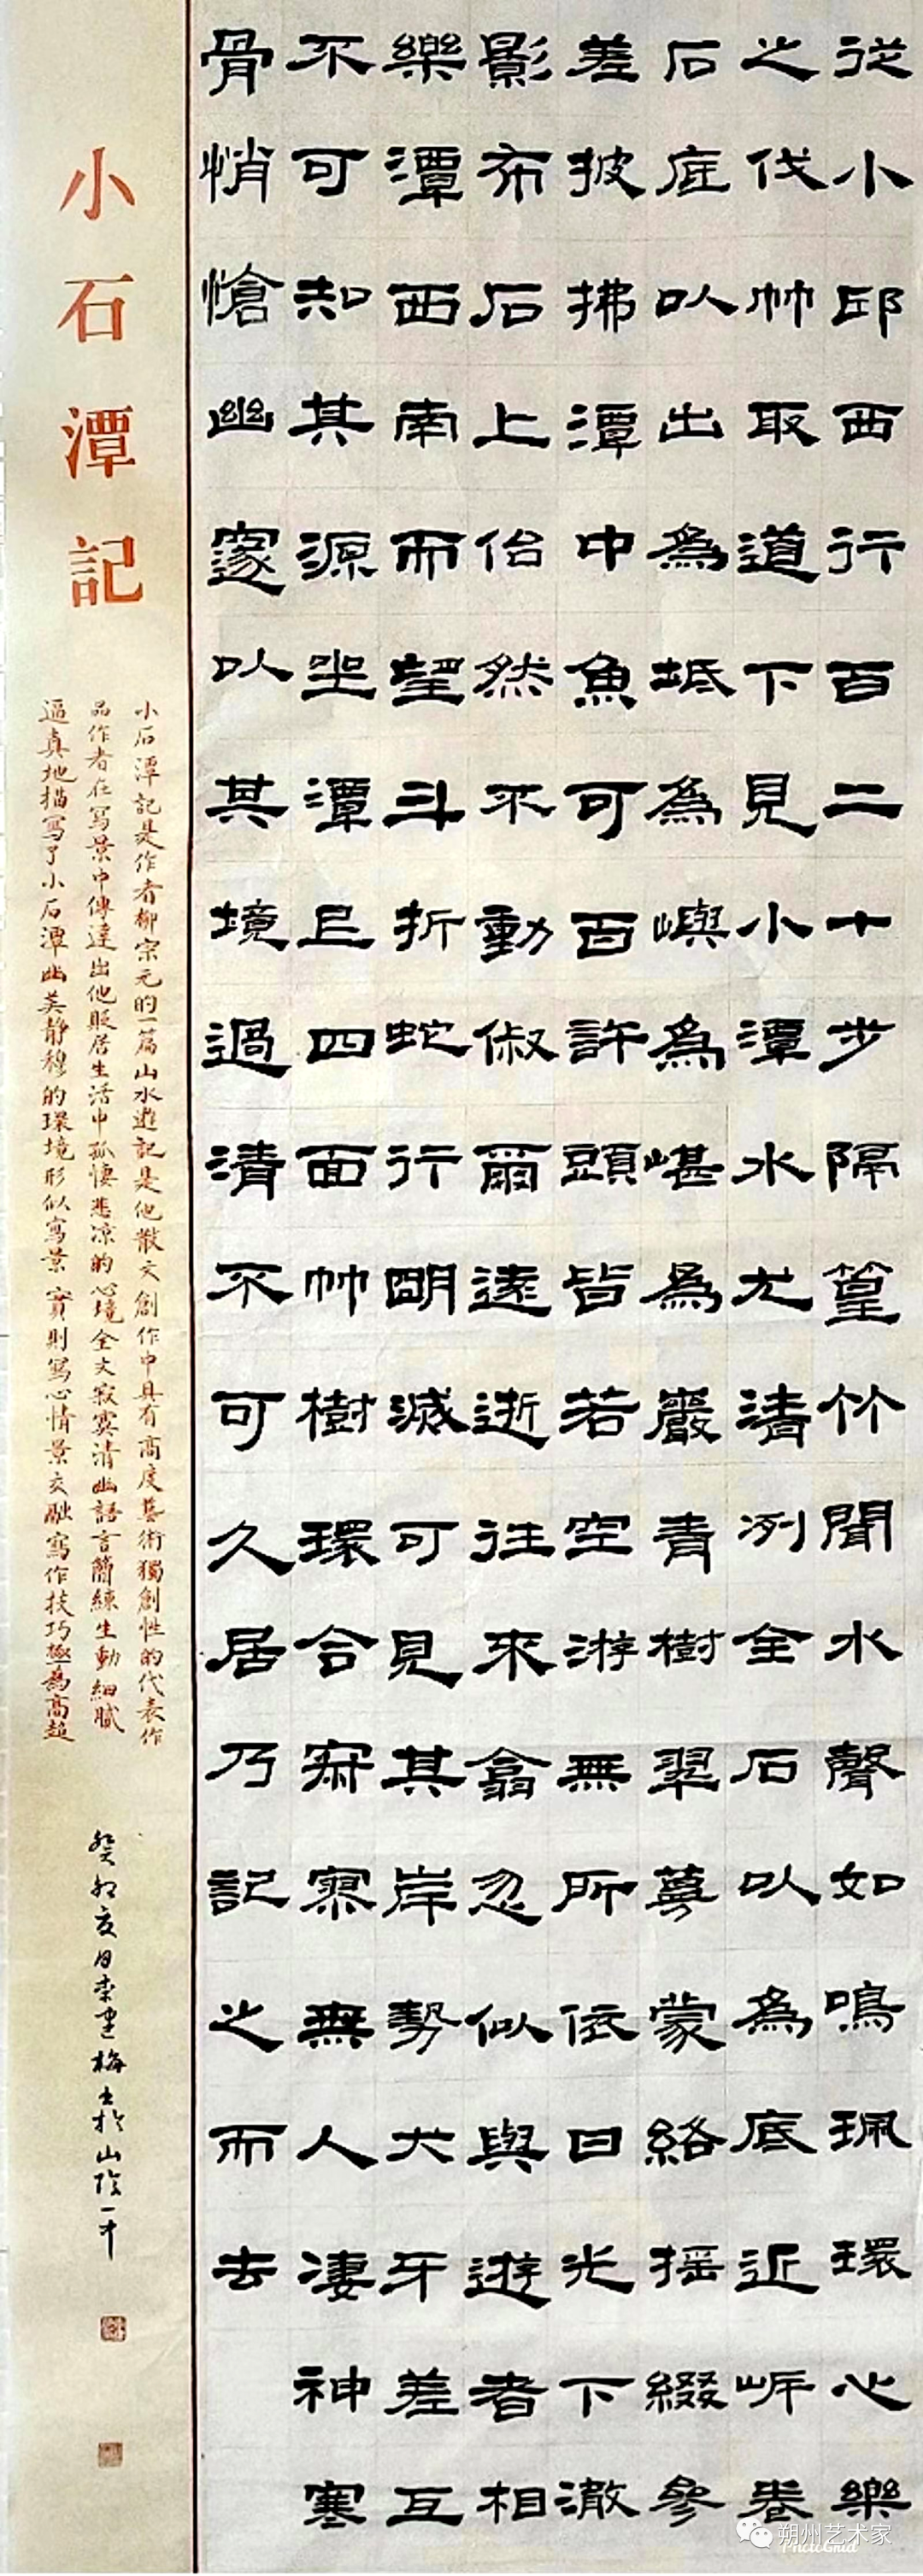 從小邱西行百二十步隔篁竹聞水聲如鳴珮環心樂
之伐竹取道下見小潭水尤清冽全石以為底近岸卷
石底以出為坻為嶼為嵁為巖青樹翠蔓蒙絡搖綴參
差披拂潭中魚可百許頭皆若空游無所依日光下澈
影布石上佁然不動俶爾遠逝往來翕忽似與遊者相
樂潭西南而望斗折蛇行明滅可見其岸勢犬牙差互
不可知其源坐潭上四面竹樹環合寂寥無人凄神寒
骨悄愴幽邃以其境過清不可久居乃記之而去
小石潭記
小石潭記是作者柳宗元的一篇山水遊記是他散文創作中具有高度藝術獨創性的代表作
品作者在寫景中傳達出他貶居生活中孤悽悲凉的心境全文寂寞清幽語言簡練生動細膩
逼真地描寫了小石潭幽美靜穆的環境形似寫景實則寫心情景交融寫作技巧極為高超
癸卯夏日李建梅書於山陰一中
朔州艺术家
PhotoGrid